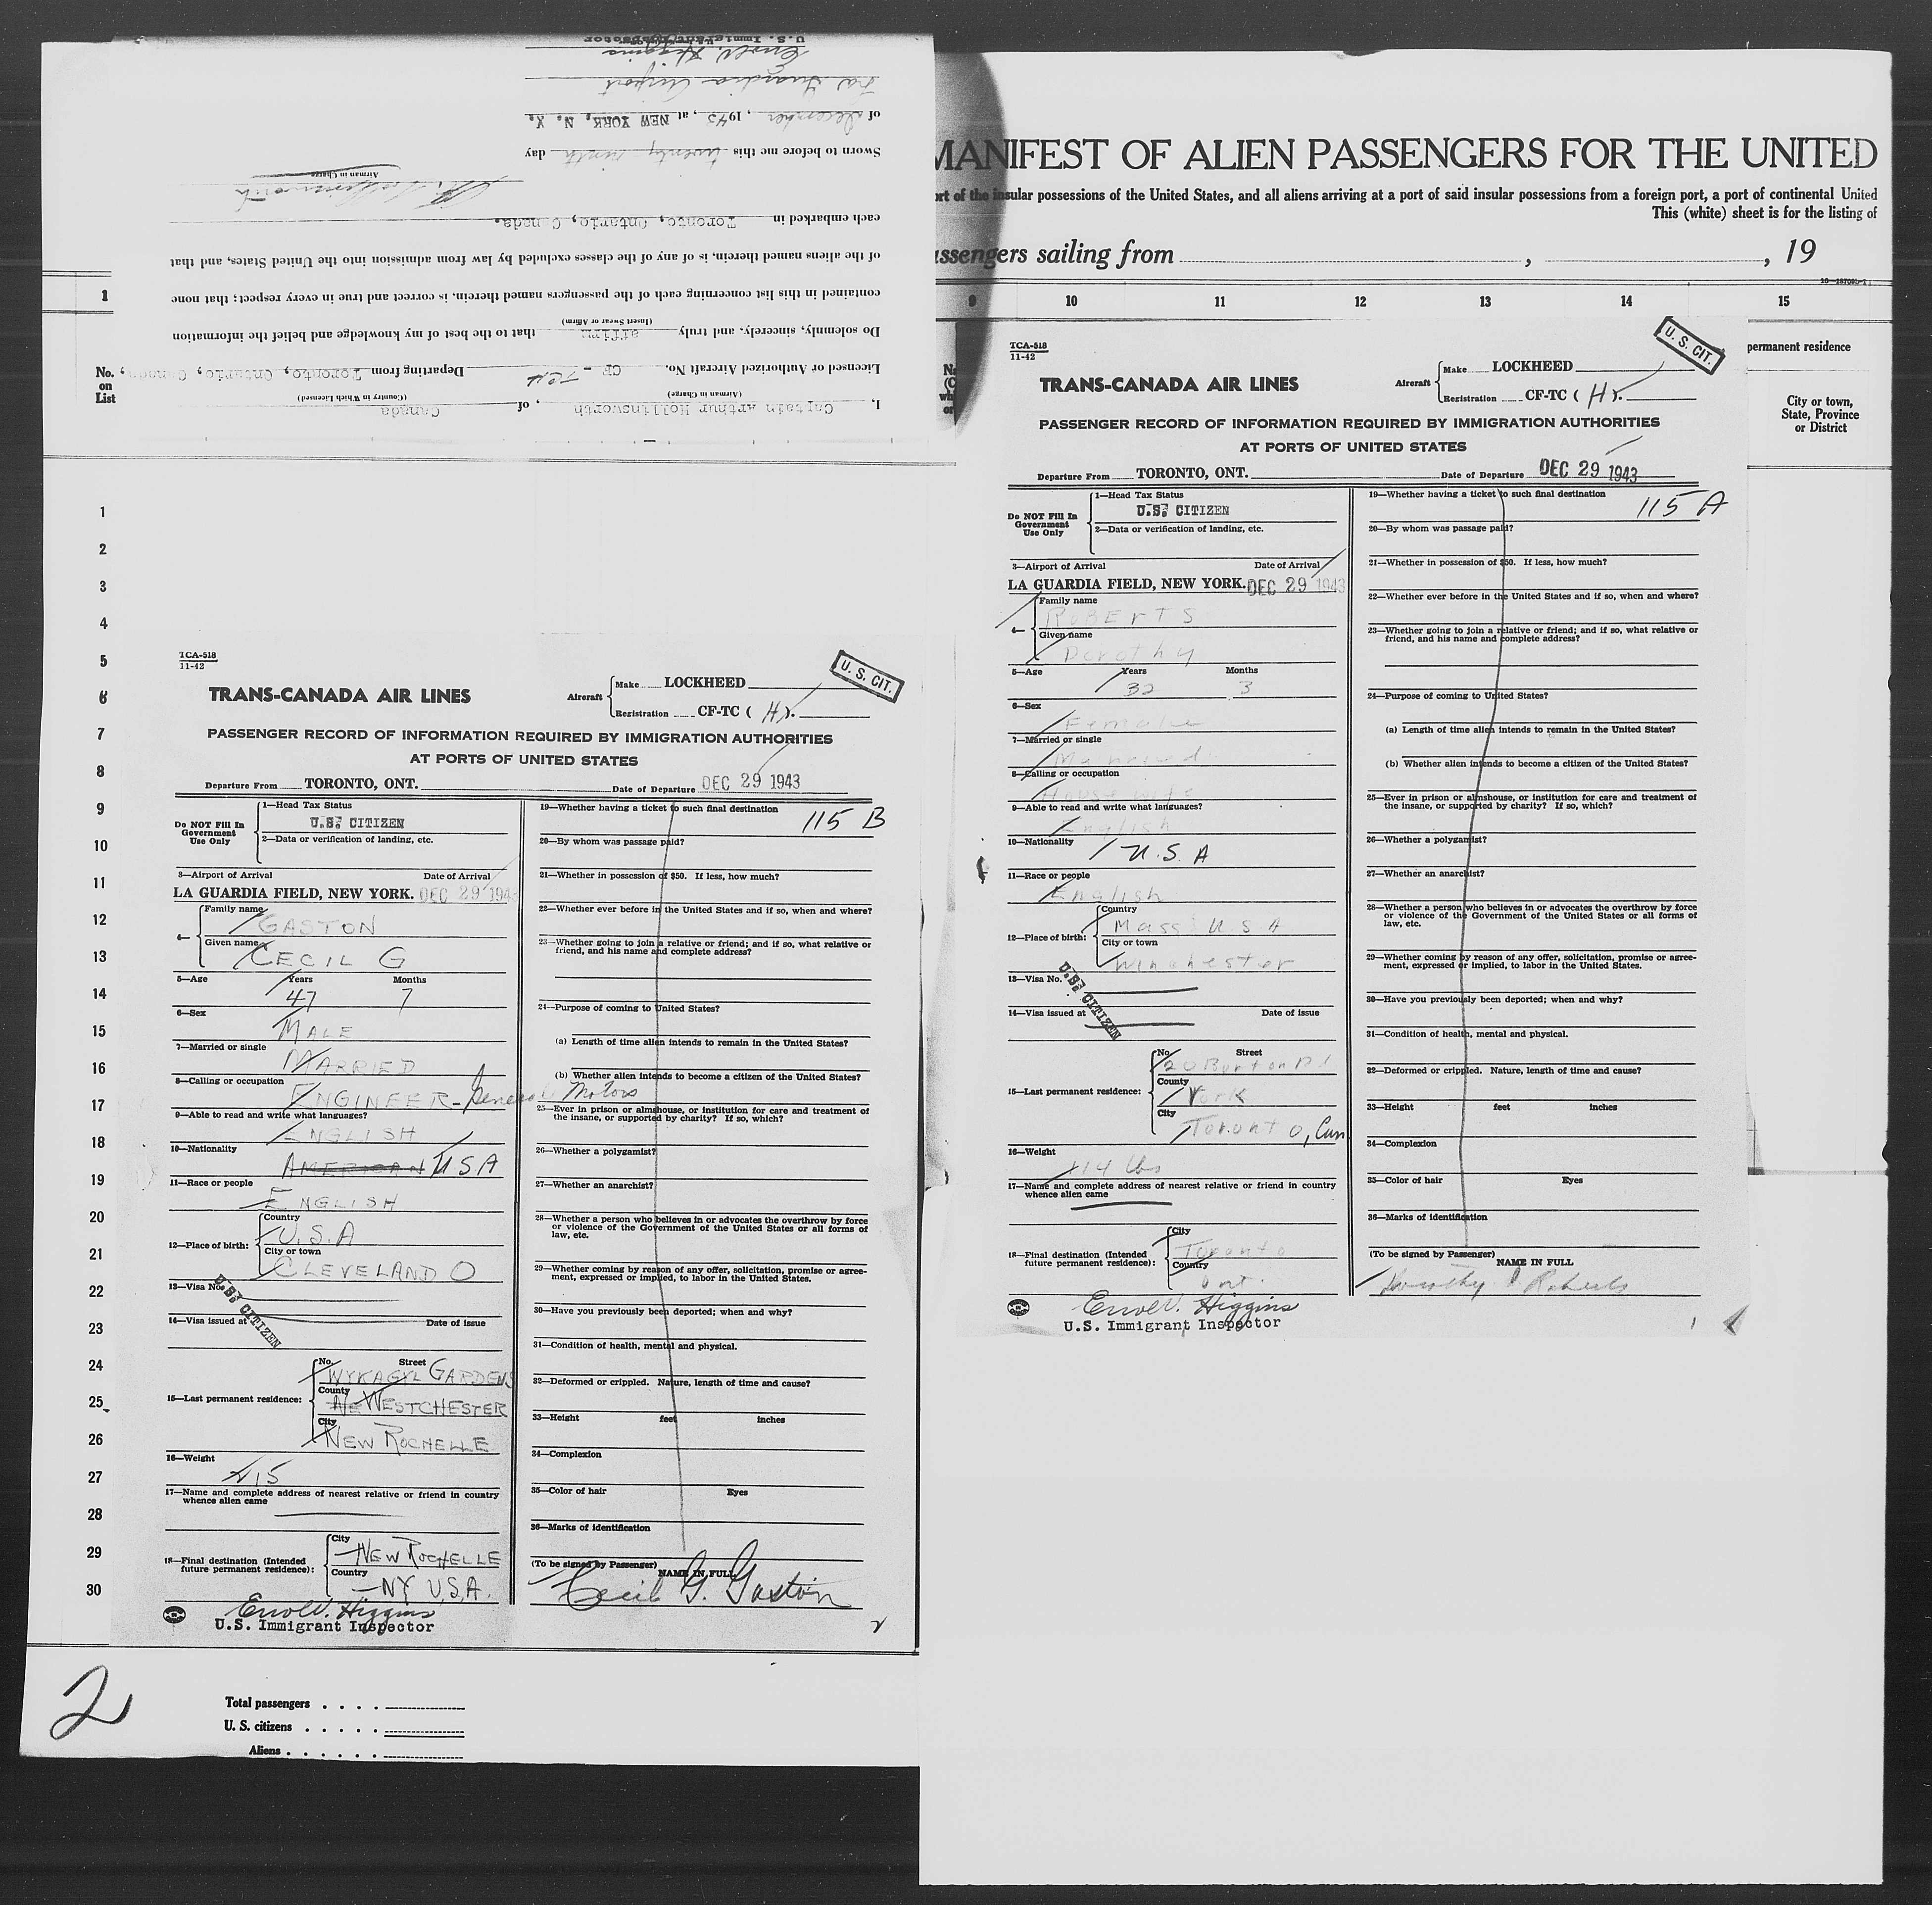 U.S. Immigrant Inspector
Errol V. Higgins
La Guardia Airport
of December, 1943, at NEW YORK, N. Y.
Sworn to before me this twenty ninth day
Airman in Charge
each embarked in Toronto, Ontario, Canada.
of the aliens named therein, is of any of the classes excluded by law from admission into the United States, and that
contained in this list concerning each of the passengers named therein, is correct and true in every respect; that none
(Insert Swear or Affirm)
Do solemnly, sincerely, and truly affirm that to the best of my knowledge and belief the information
Licensed or Authorized Aircraft No. CF - TCH Departing from Toronto, Ontario, Canada,
(Airman in Charge) (Country in Which Licensed)
I, Captain Arthur Hollinsworth, of Canada
1
No.
on
List
1
2
3
4
5
6
7
8
9
10
11
12
13
14
15
16
17
18
19
20
21
22
23
24
25
26
27
28
29
30
TCA-518
11-42
U. S. CIT.
TRANS-CANADA AIR LINES
Aircraft
Make LOCKHEED
Registration CF-TC ( H ).
PASSENGER RECORD OF INFORMATION REQUIRED BY IMMIGRATION AUTHORITIES
AT PORTS OF UNITED STATES
Departure From TORONTO, ONT. Date of Departure DEC 29 1943
Do NOT Fill In
Government
Use Only
1—Head Tax Status
U.S. CITIZEN
2—Data or verification of landing, etc.
3—Airport of Arrival Date of Arrival
LA GUARDIA FIELD, NEW YORK. DEC 29 1943
4—
Family name
GASTON
Given name
CECIL G
5—Age Years Months
47 7
6—Sex
MALE
7—Married or single
MARRIED
8—Calling or occupation
ENGINEER - General Motors
9—Able to read and write what languages?
ENGLISH
10—Nationality
AMERICAN U S A
11—Race or people
ENGLISH
12—Place of birth:
Country
U.S.A
City or town
CLEVELAND O
13—Visa No.
U.S. CITIZEN
14—Visa issued at Date of issue
15—Last permanent residence:
No. Street
WYKAGYL GARDENS
County
WESTCHESTER
City
NEW ROCHELLE
16—Weight
215
17—Name and complete address of nearest relative or friend in country
whence alien came
18—Final destination (Intended
future permanent residence):
City
NEW ROCHELLE
Country
NY U.S.A.
Errol V. Higgins
U.S. Immigrant Inspector
19—Whether having a ticket to such final destination
115 B
20—By whom was passage paid?
21—Whether in possession of $50. If less, how much?
22—Whether ever before in the United States and if so, when and where?
23—Whether going to join a relative or friend; and if so, what relative or
friend, and his name and complete address?
24—Purpose of coming to United States?
(a) Length of time alien intends to remain in the United States?
(b) Whether alien intends to become a citizen of the United States?
25—Ever in prison or almshouse, or institution for care and treatment of
the insane, or supported by charity? If so, which?
26—Whether a polygamist?
27—Whether an anarchist?
28—Whether a person who believes in or advocates the overthrow by force
or violence of the Government of the United States or all forms of
law, etc.
29—Whether coming by reason of any offer, solicitation, promise or agree-
ment, expressed or implied, to labor in the United States.
30—Have you previously been deported; when and why?
31—Condition of health, mental and physical.
32—Deformed or crippled. Nature, length of time and cause?
33—Height feet inches
34—Complexion
35—Color of hair Eyes
36—Marks of identification
(To be signed by Passenger)
NAME IN FULL
Cecil G. Gaston
2
2
Total passengers
U. S. citizens
Aliens
MANIFEST OF ALIEN PASSENGERS FOR THE UNITED
ort of the insular possessions of the United States, and all aliens arriving at a port of said insular possessions from a foreign port, a port of continental United
This (white) sheet is for the listing of
assengers sailing from , , 19
9 10 11 12 13 14 15
permanent residence
City or town,
State, Province
or District
TCA-518
11-42
U. S. CIT.
TRANS-CANADA AIR LINES
Aircraft
Make LOCKHEED
Registration CF-TC ( H ).
PASSENGER RECORD OF INFORMATION REQUIRED BY IMMIGRATION AUTHORITIES
AT PORTS OF UNITED STATES
Departure From TORONTO, ONT. Date of Departure DEC 29 1943
Do NOT Fill In
Government
Use Only
1—Head Tax Status
U.S. CITIZEN
2—Data or verification of landing, etc.
3—Airport of Arrival Date of Arrival
LA GUARDIA FIELD, NEW YORK. DEC 29 1943
4—
Family name
ROBERTS
Given name
Dorothy
5—Age Years Months
32 3
6—Sex
Female
7—Married or single
Married
8—Calling or occupation
Housewife
9—Able to read and write what languages?
English
10—Nationality
U. S. A
11—Race or people
English
12—Place of birth:
Country
Mass U S A
City or town
Winchester
13—Visa No.
U.S. CITIZEN
14—Visa issued at Date of issue
15—Last permanent residence:
No. Street
20 Burton Rd
County
York
City
Toronto, Can
16—Weight
114 lbs
17—Name and complete address of nearest relative or friend in country
whence alien came
18—Final destination (Intended
future permanent residence):
City
Toronto
Country
Ont.
Errol V. Higgins
U.S. Immigrant Inspector
19—Whether having a ticket to such final destination
115 A
20—By whom was passage paid?
21—Whether in possession of $50. If less, how much?
22—Whether ever before in the United States and if so, when and where?
23—Whether going to join a relative or friend; and if so, what relative or
friend, and his name and complete address?
24—Purpose of coming to United States?
(a) Length of time alien intends to remain in the United States?
(b) Whether alien intends to become a citizen of the United States?
25—Ever in prison or almshouse, or institution for care and treatment of
the insane, or supported by charity? If so, which?
26—Whether a polygamist?
27—Whether an anarchist?
28—Whether a person who believes in or advocates the overthrow by force
or violence of the Government of the United States or all forms of
law, etc.
29—Whether coming by reason of any offer, solicitation, promise or agree-
ment, expressed or implied, to labor in the United States.
30—Have you previously been deported; when and why?
31—Condition of health, mental and physical.
32—Deformed or crippled. Nature, length of time and cause?
33—Height feet inches
34—Complexion
35—Color of hair Eyes
36—Marks of identification
(To be signed by Passenger)
NAME IN FULL
Dorothy Roberts
1